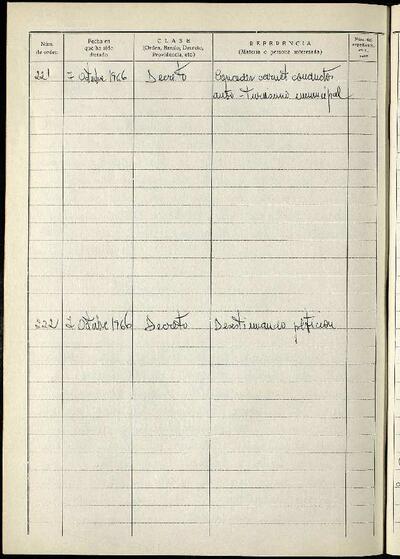 Núm. de orden
Fecha en que ha sido dictado
CLASE
(Orden, Bando, Decreto, Providencia, etc.)
REFERENCIA
(Materia o persona interesada)
221 7 Octubre 1966 Decreto Conceder carnet conductor
auto-turismo municipal
222 7 Octubre 1966 Decreto Desestimando petición